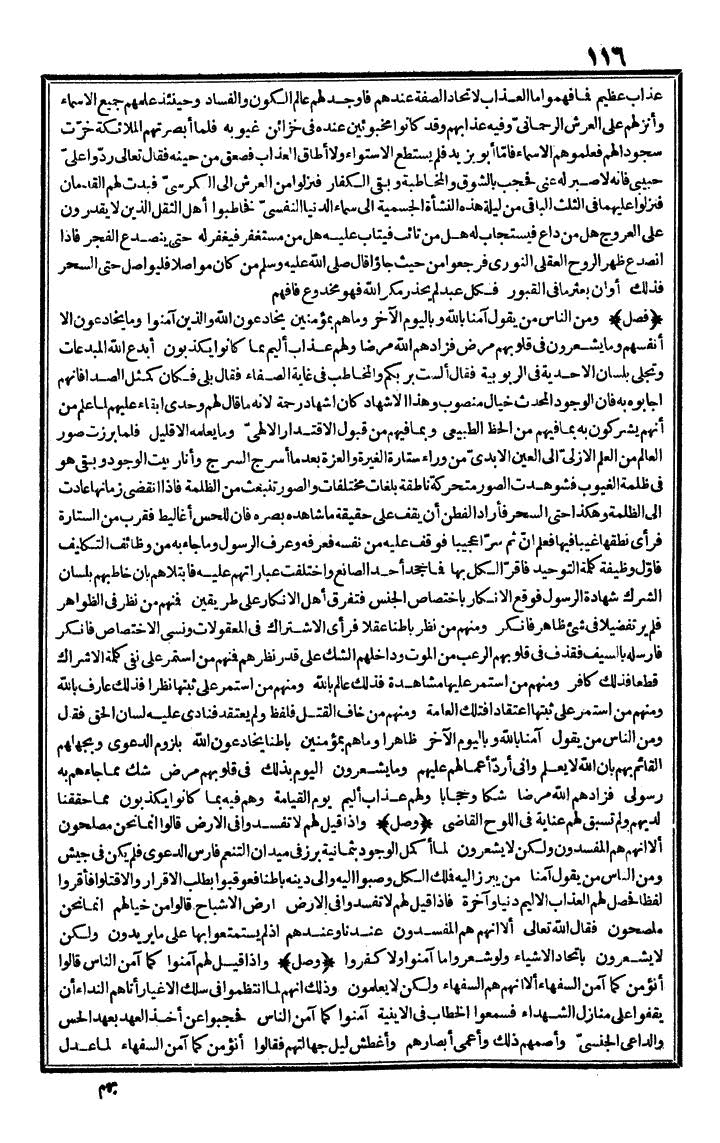 ١١٦
عذاب عظيم فافهموا ما العذاب لاتحاد الصفة عندهم فاوجد لهم عالم الكون والفساد وحينئذ علمهم جميع الاسماء
وأنزلهم على العرش الرحماني وفيه عذابهم وقد كانوا مخبوئين عنده في خزائن غيوبه فلما أبصرتهم الملائكة خرت
سجودا لهم فعلموهم الاسماء فاما أبو يزيد فلم يستطع الاستواء ولا أطاق العذاب فصعق من حينه فقال تعالى ردوا علىّ
حبيبي فانه لا صبر له عني فحجب بالشوق والمخاطبة وبقي الكفار فنزلوا من العرش الى الكرسيّ فبدت لهم القدمان
فنزلوا عليهما في الثلث الباقي من ليلة هذه النشأة الجسمية الى سماء الدنيا النفسيّ فخاطبوا أهل الثقل الذين لا يقدرون
على العروج هل من داع فيستجاب له هل من تائب فيتاب عليه هل من مستغفر فيغفر له حتى ينصدع الفجر فاذا
انصدع ظهر الروح العقلي النوري فرجعوا من حيث جاؤا قال صلى الله عليه وسلم من كان مواصلا فليواصل حتى السحر
فذلك أوان بعثر ما في القبور فكل عبد لم يحذر مكر الله فهو مخدوع فافهم
﴿فصل﴾ ومن الناس من يقول آمنا بالله وباليوم الآخر وماهم بمؤمنين يخادعون الله والذين آمنوا وما يخادعون الا
أنفسهم وما يشعرون في قلوبهم مرض فزادهم الله مرضا ولهم عذاب أليم بما كانوا يكذبون أبدع الله المبدعات
وتجلى بلسان الاحدية في الربوبية فقال ألست بربكم والمخاطب في غاية الصفاء فقال بلى فكان كمثل الصدا فانهم
اجابوه به فان الوجود المحدث خيال منصوب وهذا الاشهاد كان اشهاد رحمة لانه ما قال لهم وحدي ابقاء عليهم لما علم من
أنهم يشركون به بما فيهم من الحظ الطبيعي وبما فيهم من قبول الاقتدار الالهيّ وما يعلمه الا قليل فلما برزت صور
العالم من العلم الازليّ الى العين الابديّ من وراء ستارة الغيرة والعزة بعد ما أسرج السرج وأنار بيت الوجود وبقي هو
في ظلمة الغيوب فشوهدت الصور متحركة ناطقة بلغات مختلفات والصور تنبعث من الظلمة فاذا انقضى زمانها عادت
الى الظلمة وهكذا حتى السحر فأراد الفطن أن يقف على حقيقة ما شاهده بصره فان للحس أغاليط فقرب من الستارة
فرأى نطقها غيبا فيها فعلم انّ ثم سرّا عجيبا فوقف عليه من نفسه فعرفه وعرف الرسول وما جاء به من وظائف التكليف
فأوّل وظيفة كلمة التوحيد فاقرّ الكل بها فما جحد أحد الصانع واختلفت عباراتهم عليه فابتلاهم بان خاطبهم بلسان
الشرك شهادة الرسول فوقع الانكار باختصاص الجنس فتفرق أهل الانكار على طريقين فمنهم من نظر في الظواهر
فلم ير تفضيلا في شئ ظاهر فانكر ومنهم من نظر باطنا عقلا فرأى الاشتراك في المعقولات ونسي الاختصاص فانكر
فارسله بالسيف فقذف في قلوبهم الرعب من الموت وداخلهم الشك على قدر نظرهم فمنهم من استمر على نفي كلمة الاشراك
قطعا فذلك كافر ومنهم من استمر عليها مشاهدة فذلك عالم بالله ومنهم من استمر على ثبتها نظرا فذلك عارف بالله
ومنهم من استمر على ثبتها اعتقادا فتلك العامة ومنهم من خاف القتل فلفظ ولم يعتقد فنادى عليه لسان الحق فقال
ومن الناس من يقول آمنا بالله وباليوم الآخر ظاهرا وماهم بمؤمنين باطنا يخادعون الله بلزوم الدعوى وبجهلهم
القائم بهم بان الله لا يعلم وانى أردّ أعمالهم عليهم وما يشعرون اليوم بذلك في قلوبهم مرض شك مما جاءهم به
رسولى فزادهم الله مرضا شكا وحجابا ولهم عذاب أليم يوم القيامة وهم فيه بما كانوا يكذبون مما حققنا
لديهم ولم تسبق لهم عناية في اللوح القاضى ﴿وصل﴾ واذا قيل لهم لا تفسدوا في الارض قالوا انما نحن مصلحون
ألا انهم هم المفسدون ولكن لا يشعرون لما أكمل الوجود بثمانية برز في ميدان التنعم فارس الدعوى فلم يكن في جيش
ومن الناس من يقول آمنا من يبرز اليه فلك الكل وصبوا اليه والى دينه باطنا فعوقبوا بطلب الاقرار والاقتلوا فأقروا
لفظا فحصل لهم العذاب الاليم دنيا وآخرة فاذا قيل لهم لا تفسدوا في الارض ارض الاشباح قالوا من خيالهم انما نحن
ملصحون فقال الله تعالى ألا انهم هم المفسدون عندنا وعندهم اذ لم يستمتعوا بها على ما يريدون ولكن
لا يشعرون باتحاد الاشياء ولو شعروا ما آمنوا ولا كفروا ﴿وصل﴾ واذا قيل لهم آمنوا كما آمن الناس قالوا
أنؤمن كما آمن السفهاء ألا انهم هم السفهاء ولكن لا يعلمون وذلك انهم لما انتظموا في سلك الاغيار أتاهم النداء أن
يقفوا على منازل الشهداء فسمعوا الخطاب في الاينية آمنوا كما آمن الناس فحجبوا عن أخذ العهد بعهد الحس
والداعي الجنسيّ وأصمهم ذلك وأعمى أبصارهم وأغطش ليل جهالتهم فقالوا أنؤمن كما آمن السفهاء لما عدل
بهم